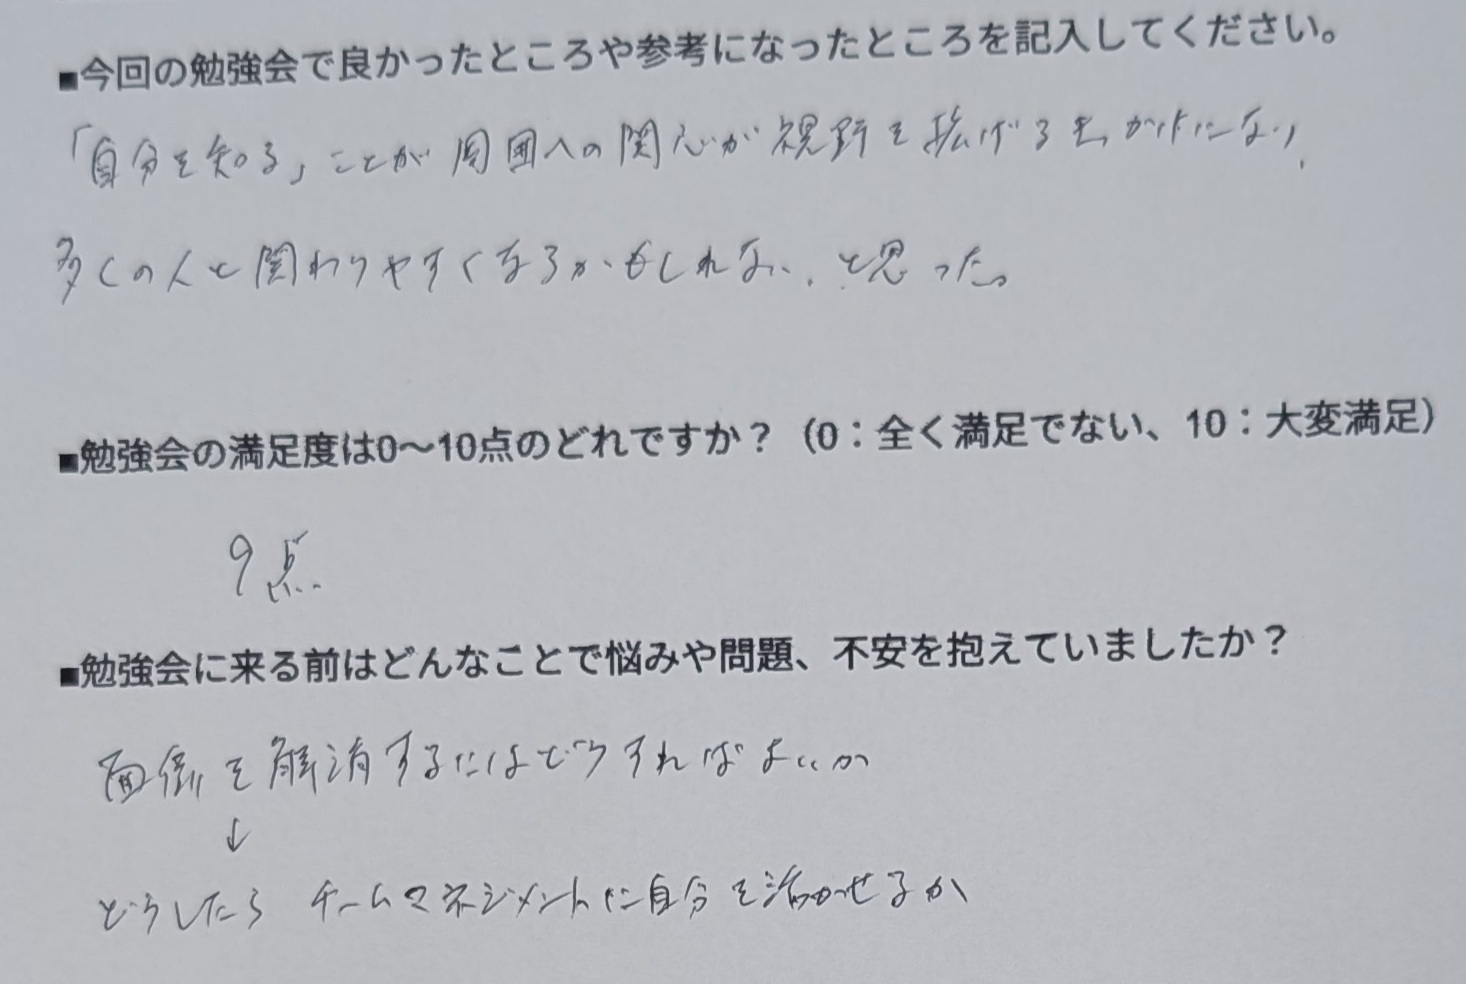 ■今回の勉強会で良かったところや参考になったところを記入してください。
「自分を知る」ことが周囲への関心が視野を拡げるきっかけになり、
多くの人と関わりやすくなるかもしれない、と思った。
■勉強会の満足度は0～10点のどれですか？（0：全く満足でない、10：大変満足）
9点
■勉強会に来る前はどんなことで悩みや問題、不安を抱えていましたか？
面倒を解消するにはどうすればよいか
↓
どうしたらチームマネジメントに自分を活かせるか